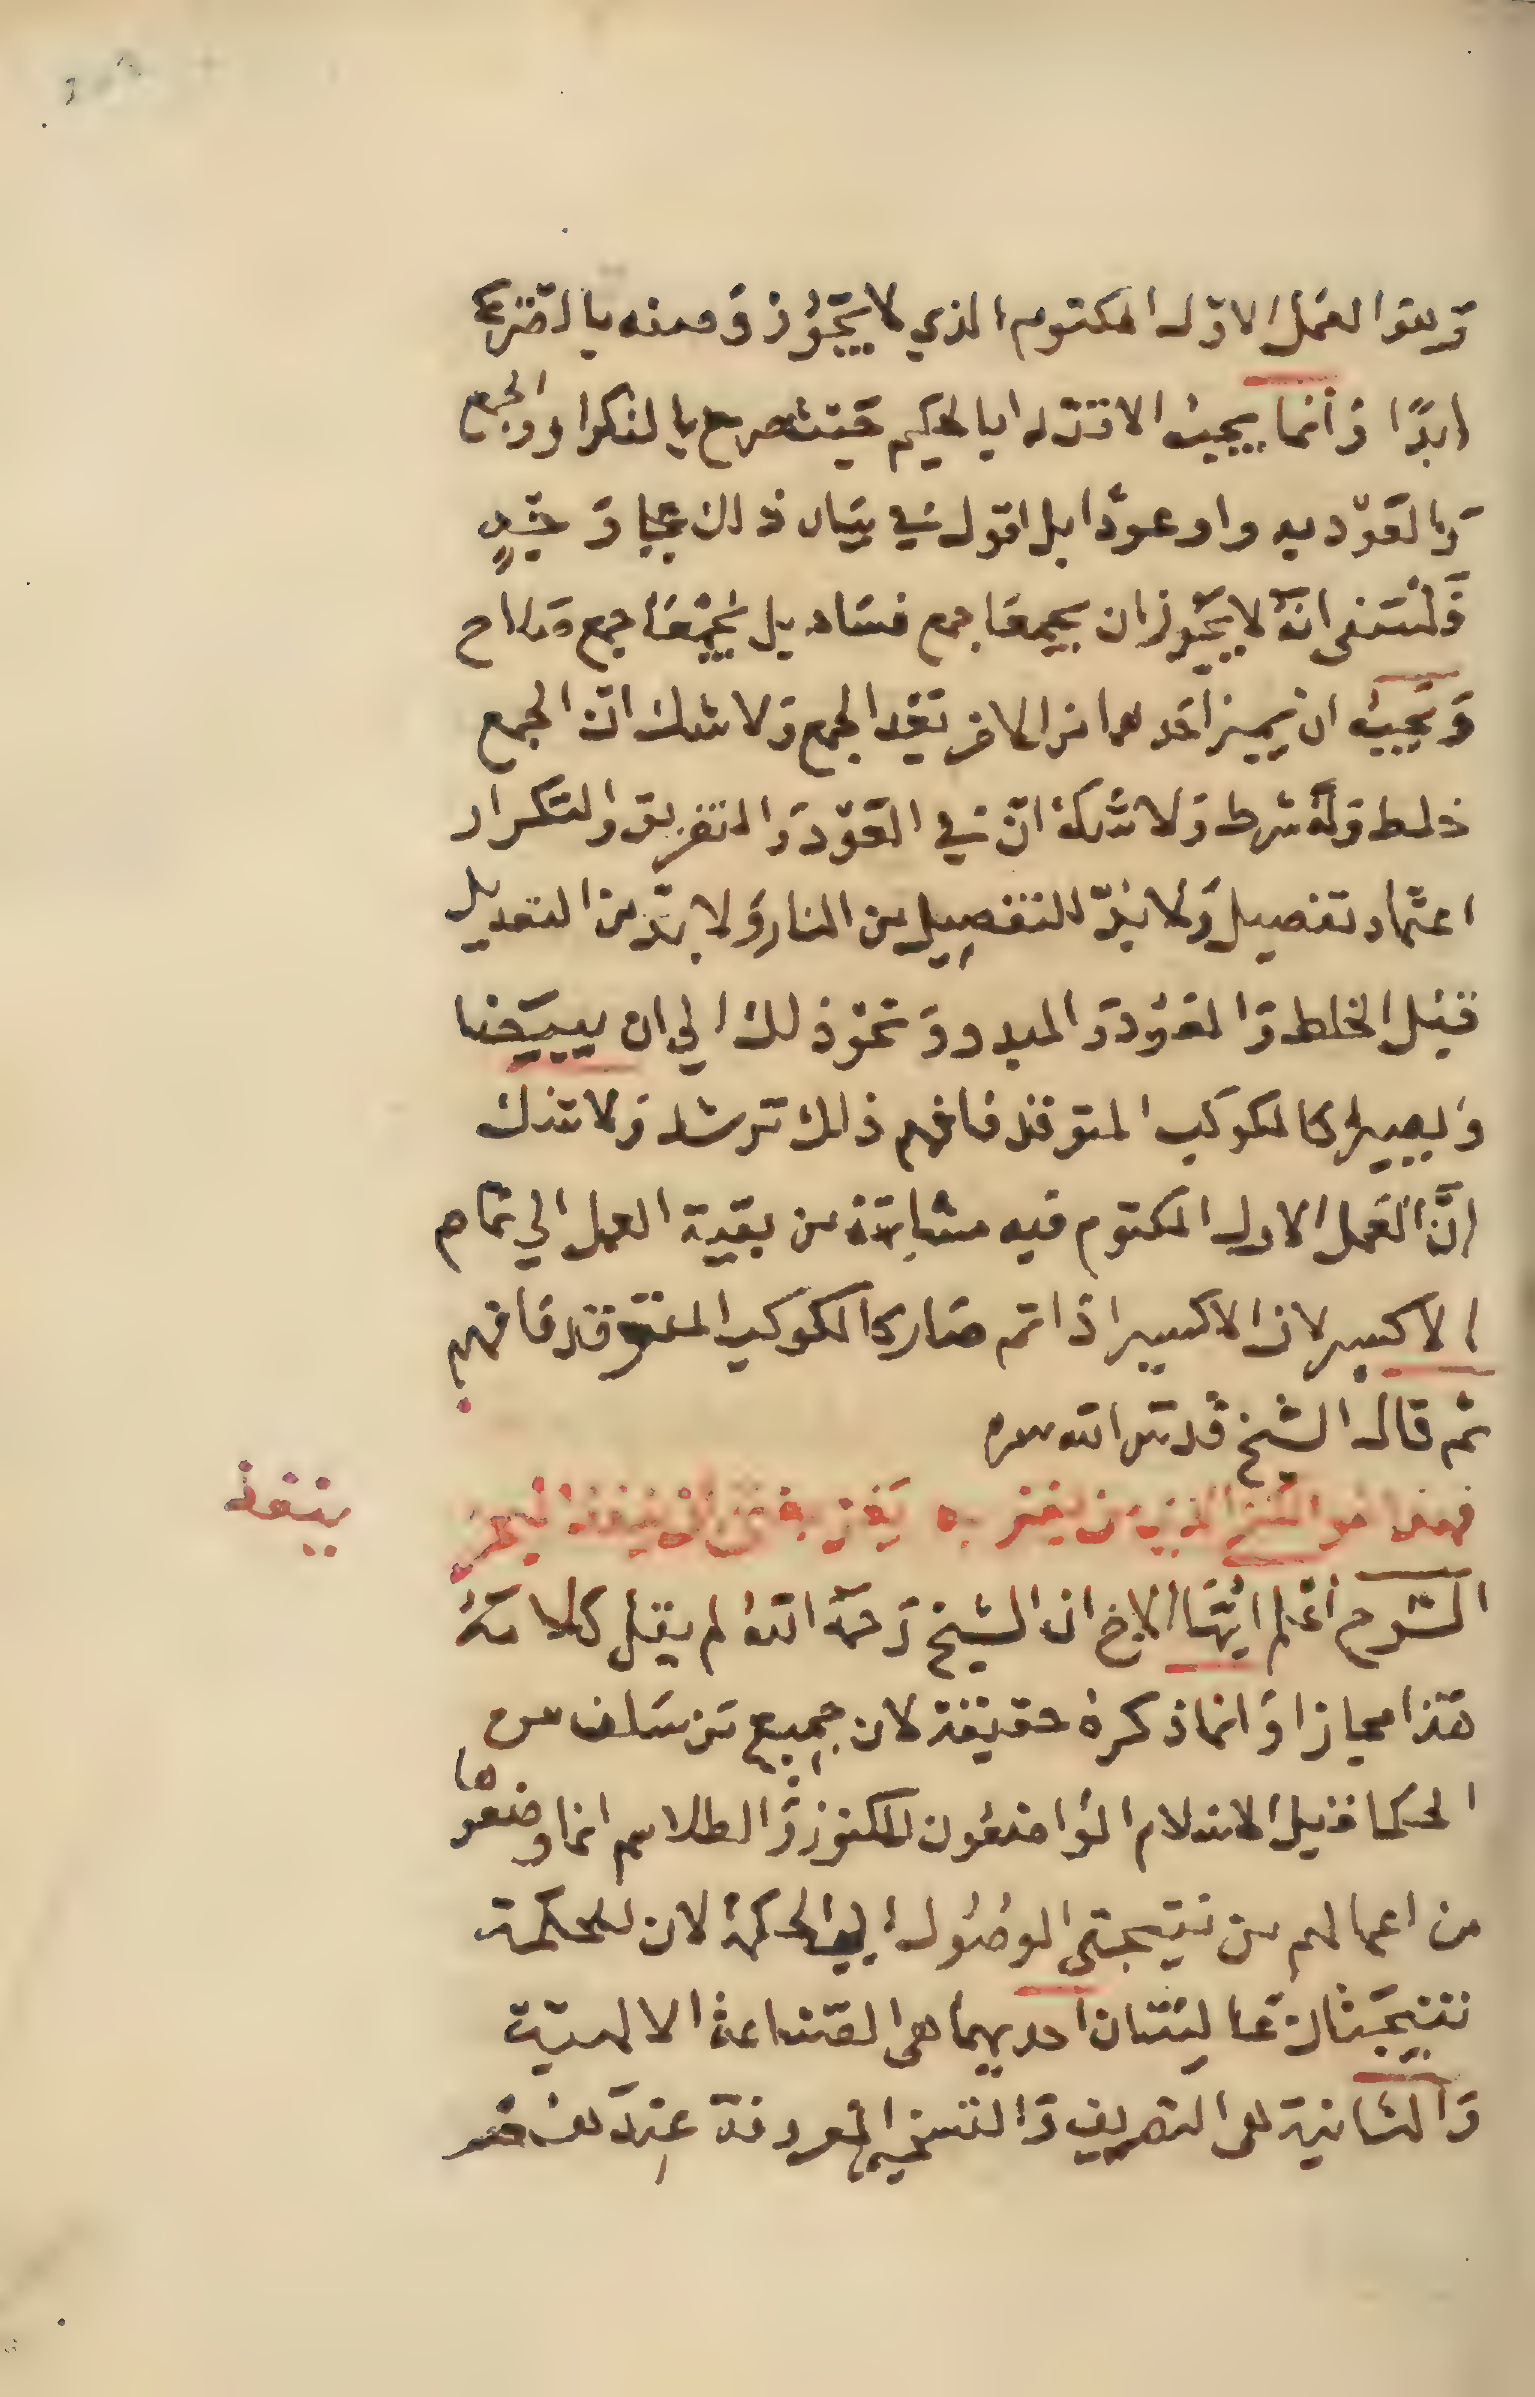 وهو العمل الاول المكتوم الذي لا يجوز وصفه بالتصريح
ابدًا وَانما يجب الاقتدا بالحكيم حَيث صرح بالتكرار والجمع
وَالعَود بدوا وعودًا بل اقول في بيَان ذلك
انهُ لا يجوز ان يجمعا جمع فسَاد بل يُجمعَا جمع صَلاح
وَيجب ان يميز احَدهما من الاخر بَعْد الجمع وَلا شك ان الجمع
خلط وَلهُ شرط وَلا شك انّ في العَوْد وَالتفريق وَالتكرار
اعتماد تفصيل وَلا بُدّ للتفصيل من النار وَلا بدّ من التعديل
قبْل الخلط وَالعَوْد وَالبدو وَنحوْ ذلك الي ان يبيَضا
وَيصير كالكوكب المتوقد فافهم ذلك ترشد وَلا شك
انَّ العَمل الاول المكتوم فيه مشابهَة من بقية العمل الي تمام
الاكسير لان الاكسير اذا تم صَار كالكوكب المتوَقد فَافهم
ثم قال الشيخ قدسَ الله سره
فهذا هو الكنز الذي من يفز به يَفز بغنى لا ينفد البحر
ينفذ
الشرح اعْلم ايُّهَا الاخ ان الشيخ رَحمهُ اللهُ لم يقل كلامَهُ
هَذا مجازا وَانما ذكرهُ حقيقة لان جميع مَن سَلف من
الحكما قبل الاسلام الوَاضعُون للكنوز وَالطلاسم انما وضعُوها
من اعمالهم من نتيجتى الوصُول الي الحكمة لان للحكمة
نتيجَتان عَاليَتان احديهما هى الصّناعة الالهيّة
وَالثانية هى التصريف وَالتسخير المعروفة عِندَ من